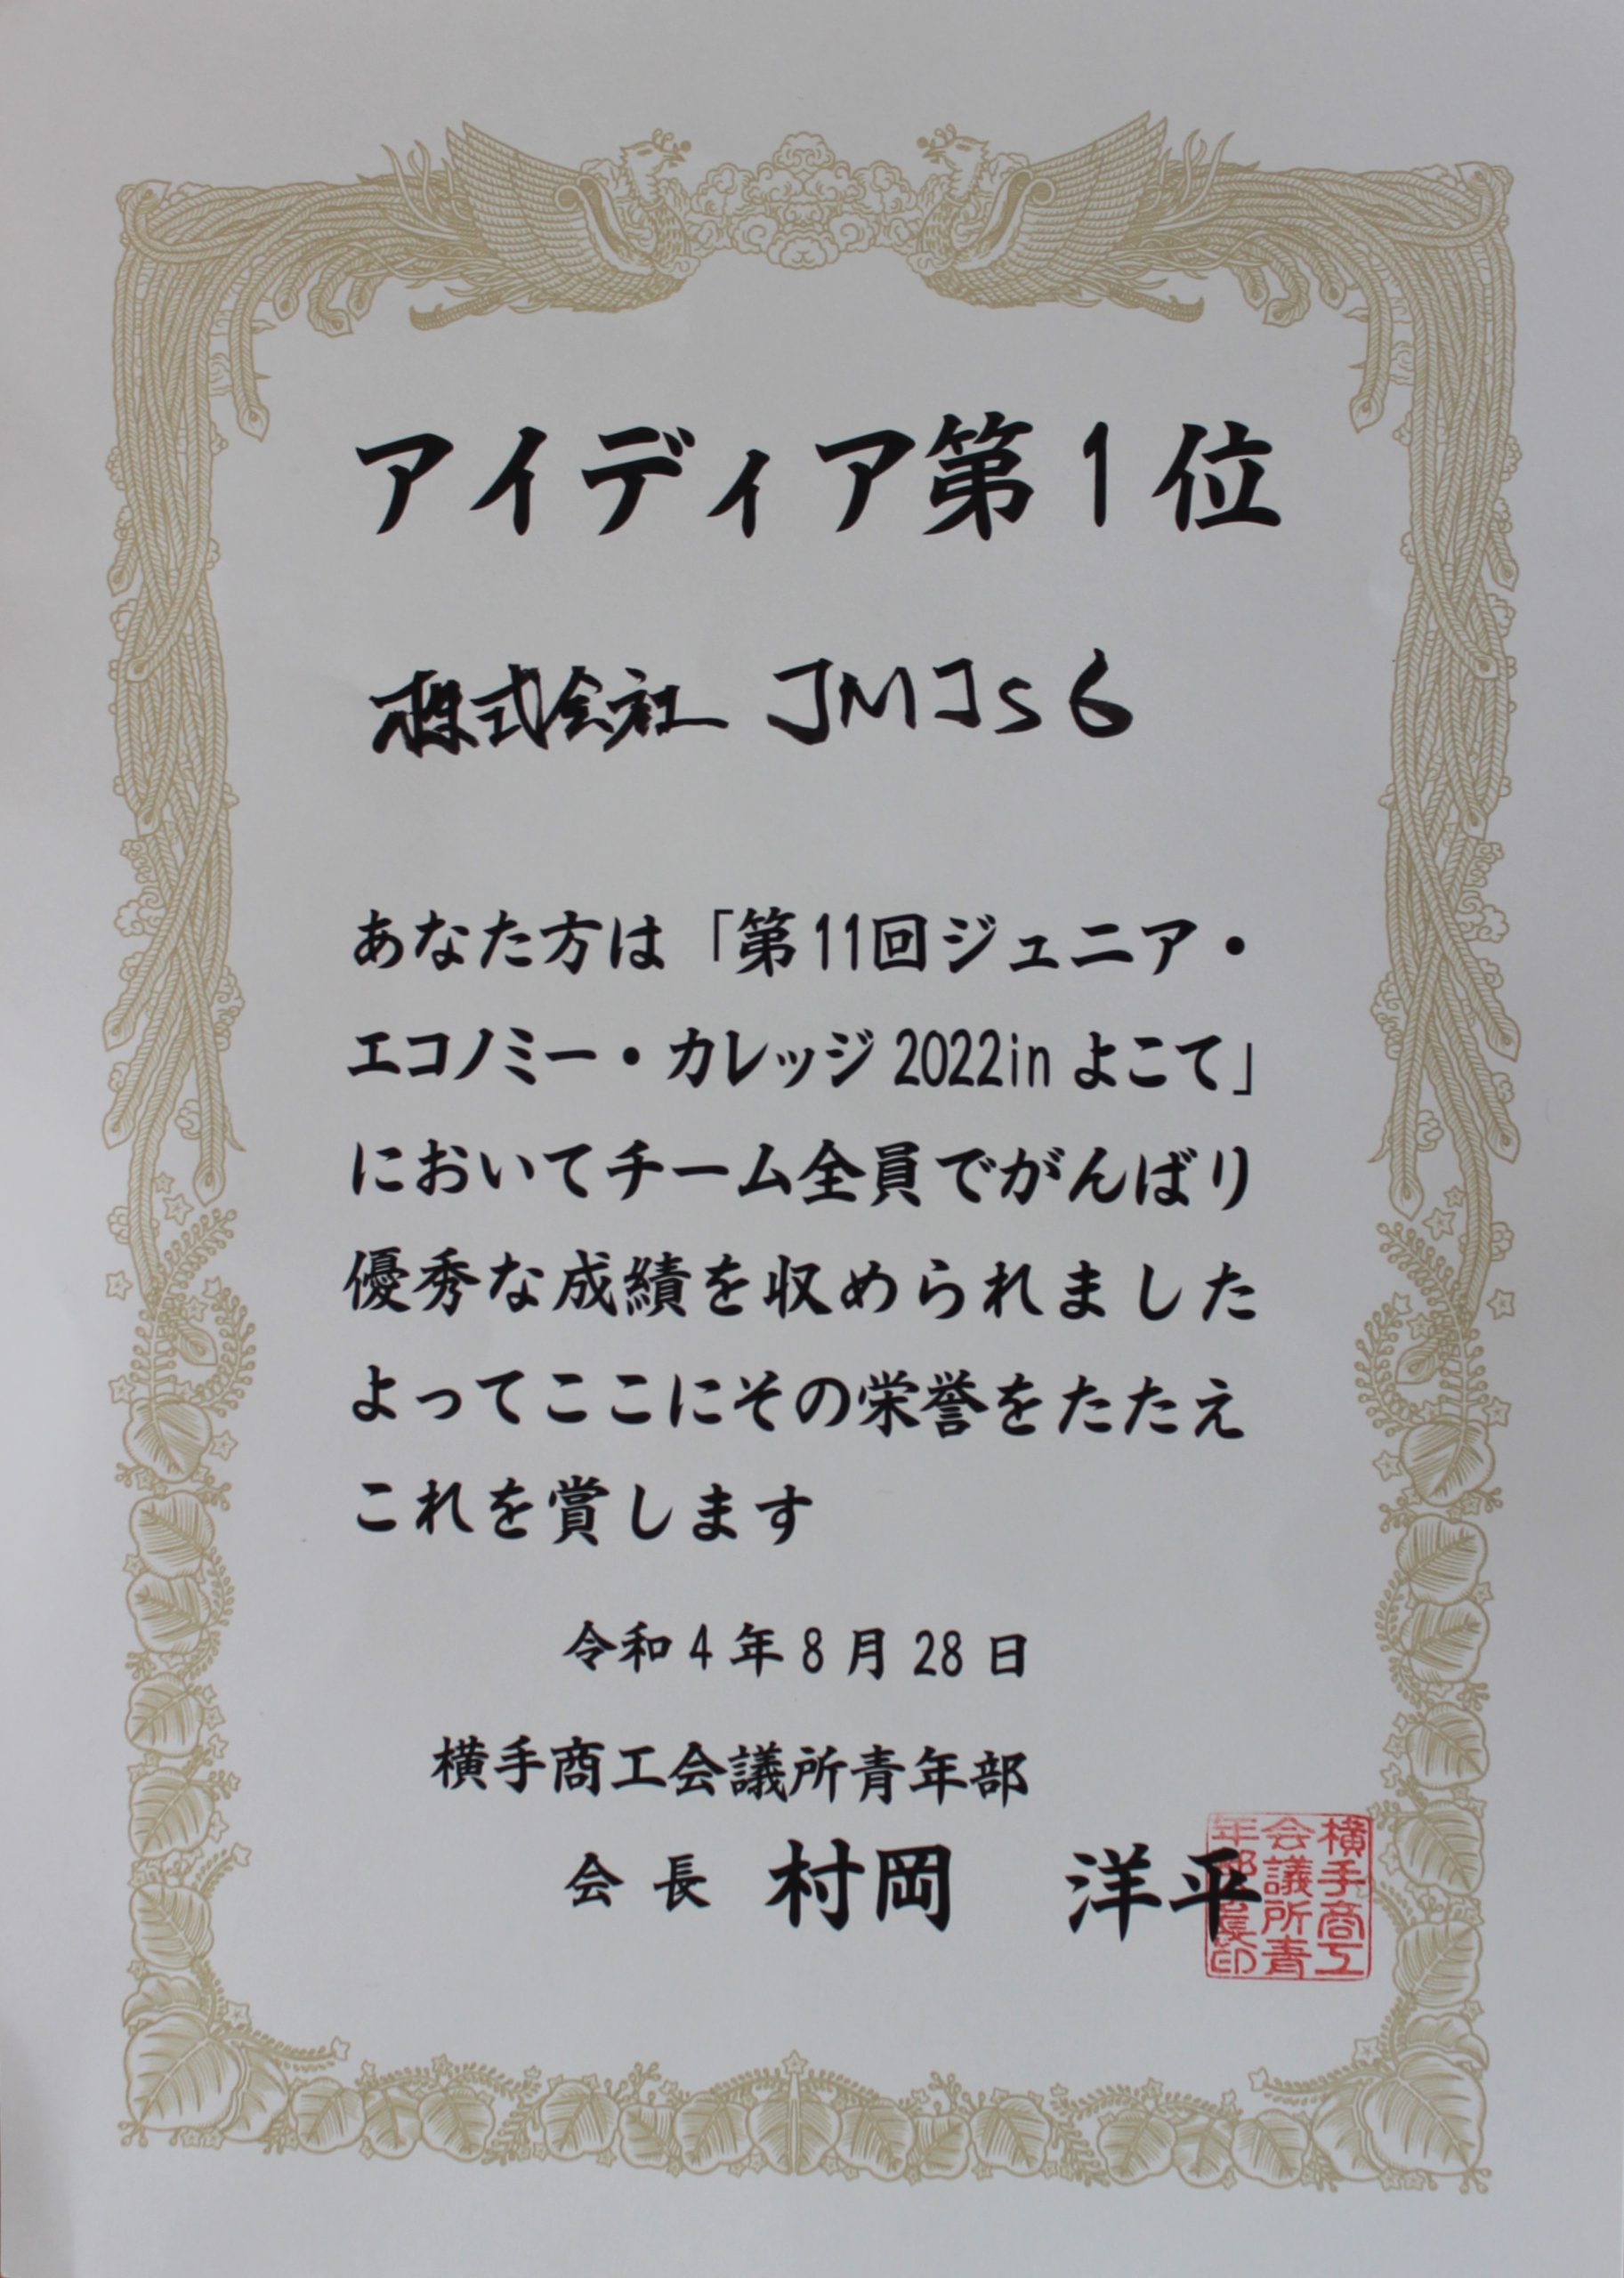 アイディア第1位
株式会社 JMJs6
あなた方は「第11回ジュニア・
エコノミー・カレッジ2022inよこて」
においてチーム全員でがんばり
優秀な成績を収められました
よってここにその栄誉をたたえ
これを賞します
令和4年8月28日
横手商工会議所青年部
会長 村岡 洋平
横手商工
会議所青
年部会長印